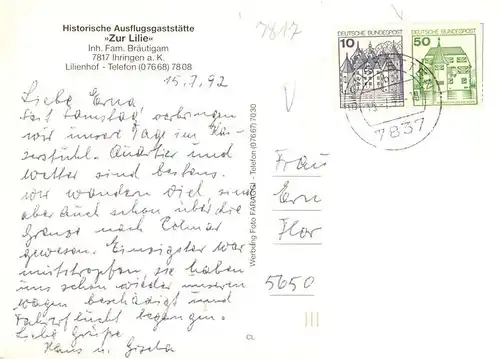 Historische Ausflugsgaststätte
»Zur Lilie«
Inh. Fam. Bräutigam
7817 Ihringen a. K.
Lilienhof - Telefon (07668) 7808
15.7.92
Liebe Erna,
seit Samstag verbringen
wir unsere Tage im Kai-
serstuhl. Quartier und
Wetter sind bestens.
Wir wandern viel, sind
aber auch schon über die
Grenze nach Colmar
gewesen. Einzigster War
mutstropfen, sie haben
uns schon wieder unseren
Wagen beschädigt und
Fahrerflucht begangen.
Liebe Grüße
Hans u. Gisela
Werbung Foto FARAGGI - Telefon (07667) 7030
CL
7817
10
50
7837
Frau
Ern
Flor
5650